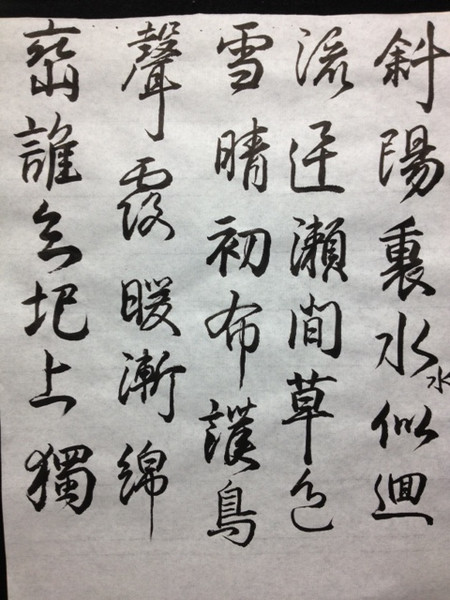 斜陽裏水似迴
水
流瀬間草色
雪晴初布護鳥
聲霞暖漸綿
誰知圯上獨